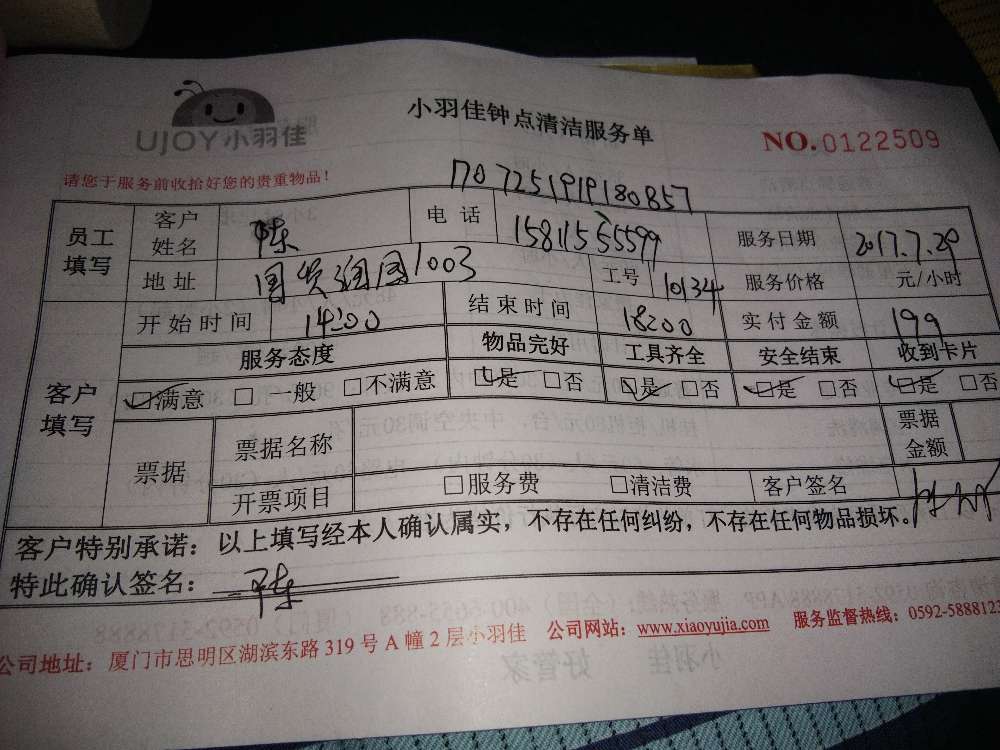 UJOY小羽佳
小羽佳钟点清洁服务单
NO.0122509
请您于服务前收拾好您的贵重物品！
1707251919180857
员工填写 客户姓名 陈 电话 15811555599 服务日期 2017.7.29
地址 国贸润园1003 工号 10134 服务价格 元/小时
客户填写 开始时间 14:00 结束时间 18:00 实付金额 199
服务态度 物品完好 工具齐全 安全结束 收到卡片
☑满意 □一般 □不满意 ☑是 □否 ☑是 □否 ☑是 □否 ☑是 □否
票据 票据名称 票据金额
开票项目 □服务费 □清洁费 客户签名
客户特别承诺：以上填写经本人确认属实，不存在任何纠纷，不存在任何物品损坏。
特此确认签名：陈
公司地址：厦门市思明区湖滨东路319号A幢2层小羽佳 公司网站：www.xiaoyujia.com 服务监督热线：0592-5888123